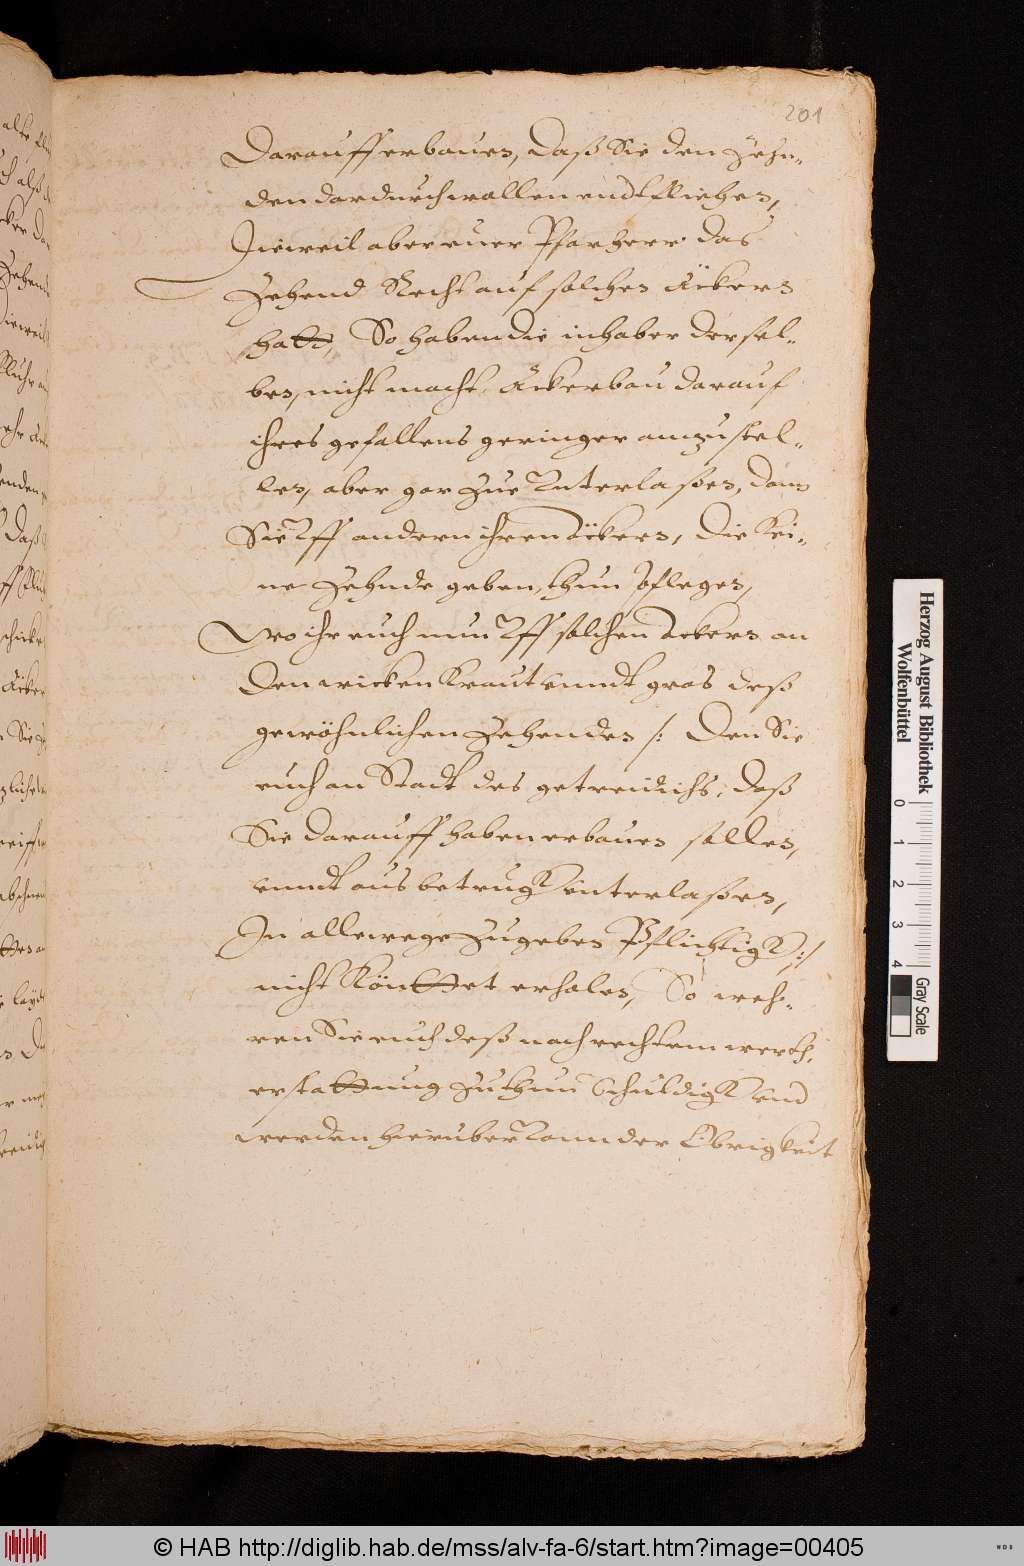 201
Darauff erbauen, daß Sie den Zehn-
den dardurch wollen endtfliehen,
Dieweil aber euer Pfarherr das
Zehend Recht auf solchen Äckern
hatt, So haben die inhaber dersel-
ben, nicht macht, Äckerbau darauf
ihres gefallens geringer anzustel-
len, aber gar zue Unterlaßen, dann
Sie Uff andern ihren äckern, die kei-
ne Zehnde geben, thun pflegen,
Wo ihr euch nun Uff solchen äckern an
den wicken Kraut unndt gras deß
gewöhnlichen Zehenden /: Den Sie
euch an Stadt des getreidichs, daß
Sie darauff haben erbauen sollen,
unndt aus betrugk unterlaßen,
In allewege zugeben Pflichtigk :/
nicht könttet erholen, So weh-
ren Sie euch deß nach rechtem werth,
erstattung zuthun schuldigk und
werden hieruber vonn der Obrigkeit
Herzog August Bibliothek
Wolfenbüttel
0 1 2 3 4
Gray Scale
© HAB http://diglib.hab.de/mss/alv-fa-6/start.htm?image=00405